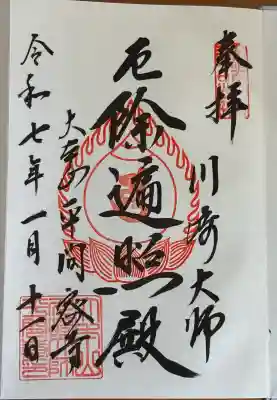 奉拝
川崎大師
厄除遍照殿
大本山平間寺
令和七年一月十一日